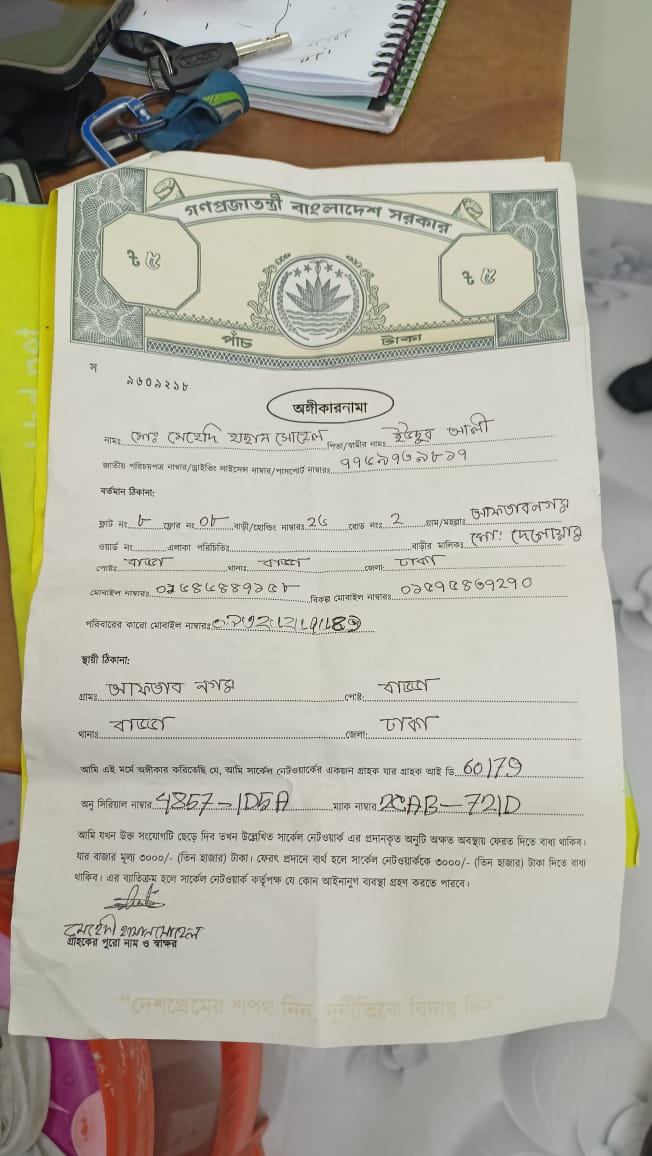 গণপ্রজাতন্ত্রী বাংলাদেশ সরকার
৳ ৫ ৳ ৫
পাঁচ টাকা
স
৯৬০৯২১৮
অঙ্গীকারনামা
নামঃ মোঃ মেহেদি হাছান সোহেল পিতা/স্বামীর নামঃ ইউনুব আলী
জাতীয় পরিচয়পত্র নাম্বার/ড্রাইভিং লাইসেন্স নাম্বার/পাসপোর্ট নাম্বারঃ
বর্তমান ঠিকানা:
ফ্লাট নং ৮ ফ্লোর নং ০৮ বাড়ী/হোল্ডিং নাম্বারঃ ২৫ রোড নংঃ 2 গ্রাম/মহল্লাঃ আফতাবনগর
ওয়ার্ড নং এলাকা পরিচিতিঃ বাড়ীর মালিকঃ মোঃ দেলোয়ার
পোষ্টঃ বাড্ডা থানাঃ বাড্ডা জেলাঃ ঢাকা
মোবাইল নাম্বারঃ বিকল্প মোবাইল নাম্বারঃ
পরিবারের কারো মোবাইল নাম্বারঃ
স্থায়ী ঠিকানা:
গ্রামঃ আফতাব নগর পোষ্ট: বাড্ডা
থানাঃ বাড্ডা জেলা: ঢাকা
আমি এই মর্মে অঙ্গীকার করিতেছি যে, আমি সার্কেল নেটওয়ার্কের একজন গ্রাহক যার গ্রাহক আই ডি 60179
অনু সিরিয়াল নাম্বার 4857-1D5A ম্যাক নাম্বার 2CAB-721D
আমি যখন উক্ত সংযোগটি ছেড়ে দিব তখন উল্লেখিত সার্কেল নেটওয়ার্ক এর প্রদানকৃত অনুটি অক্ষত অবস্থায় ফেরত দিতে বাধ্য থাকিব।
যার বাজার মূল্য ৩০০০/- (তিন হাজার) টাকা। ফেরৎ প্রদানে ব্যর্থ হলে সার্কেল নেটওয়ার্ককে ৩০০০/- (তিন হাজার) টাকা দিতে বাধ্য
থাকিব। এর ব্যতিক্রম হলে সার্কেল নেটওয়ার্ক কর্তৃপক্ষ যে কোন আইনানুগ ব্যবস্থা গ্রহণ করতে পারবে।
মেহেদী হাসান সোহেল
গ্রাহকের পুরো নাম ও স্বাক্ষর
“দেশপ্রেমের শপথ নিন, দুর্নীতিকে বিদায় দিন”